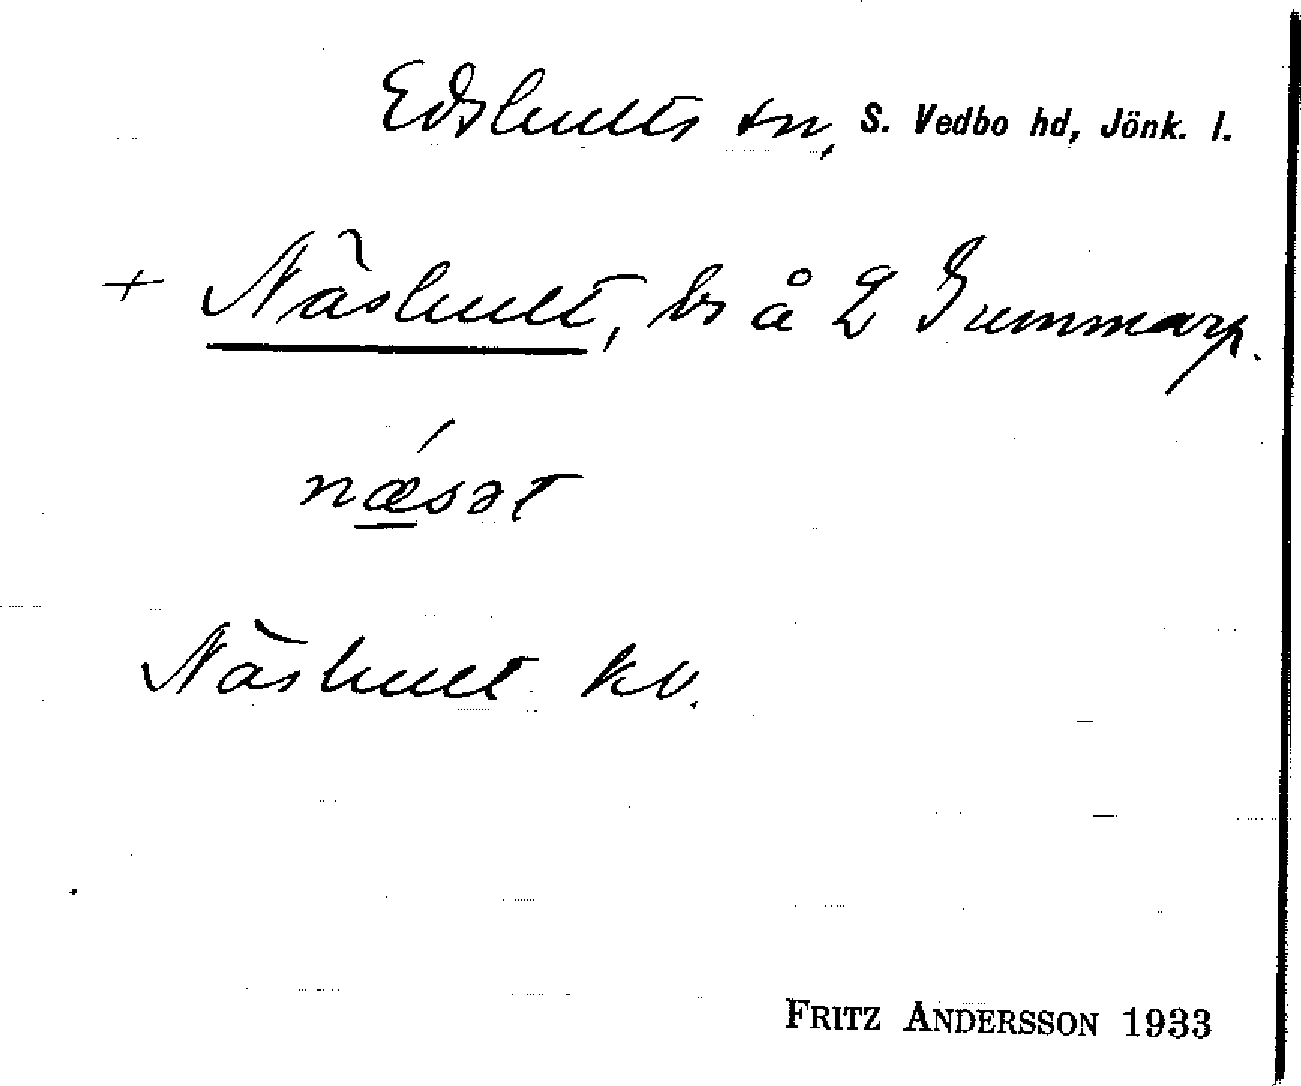 Edshults sn, S. Vedbo hd, Jönk. l.
+ Näshult, bs å 2 Gummarp.
næ´sət
Näshult kv.
FRITZ ANDERSSON 1933